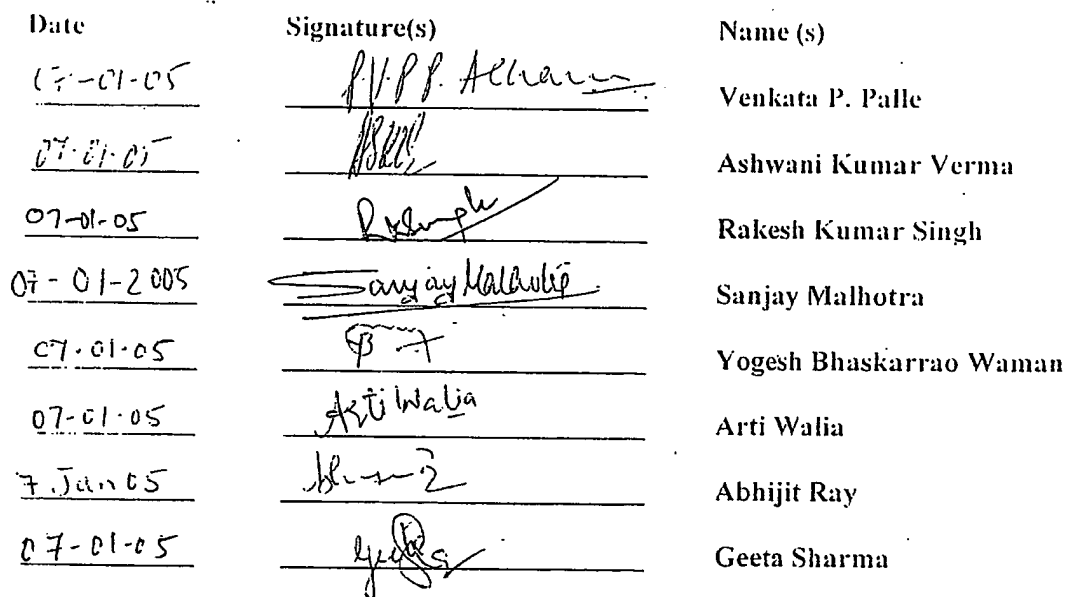 Date Signature(s) Name (s)
07-01-05 P.V.P.P. Venkata P. Palle
07.01.05 Ashwani Kumar Verma
07-01-05 Rakesh Kumar Singh
07-01-2005 Sanjay Malhotra Sanjay Malhotra
07.01.05 Yogesh Bhaskarrao Waman
07-01-05 Arti Walia Arti Walia
7.Jan 05 Abhijit Ray
07-01-05 Geeta Sharma